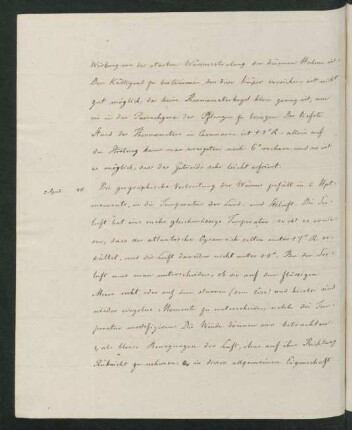 Wirkung von der starken Wärmestrahlung der dünnen Halme ist.
Den Kältegrad zu bestimmen den diese länger ist nicht
gut möglich, da keine Thermometerkugel klein genug ist, um
sie in das Parenchym der Pflanzen zu bringen. Der tiefste
Stand des Thermometers in ist + 2° R. allein auf
die Strahlung kann man wenigstens noch 6° rechnen, und so ist
es möglich, dass das Getreide sehr leicht erfriert.
Die geographische Verbreitung der Wärme zerfällt in 2 Hpt-
momente, in die Temperatur der Land- und Seeluft. Die See-
luft hat eine mehr gleichmässige Temperatur so ist es erwie-
sen, dass der atlantische Ocean sich selten unter + 7° R. er-
kältet, und die Luft darüber nicht unter + 3°. Bei der See-
luft muss man unterscheiden, ob sie auf dem flüssigen
Meere ruht, oder auf dem starren (dem Eise) und hierbei sind
wieder einzelne Momente zu unterscheiden welche die Tem-
peratur modifiziren. Die Winde können wir betrachten
als blosse Bewegungen der Luft, ohne auf ihre Richtung
Rücksicht zu nehmen; in dieser allgemeinen Eigenschaft